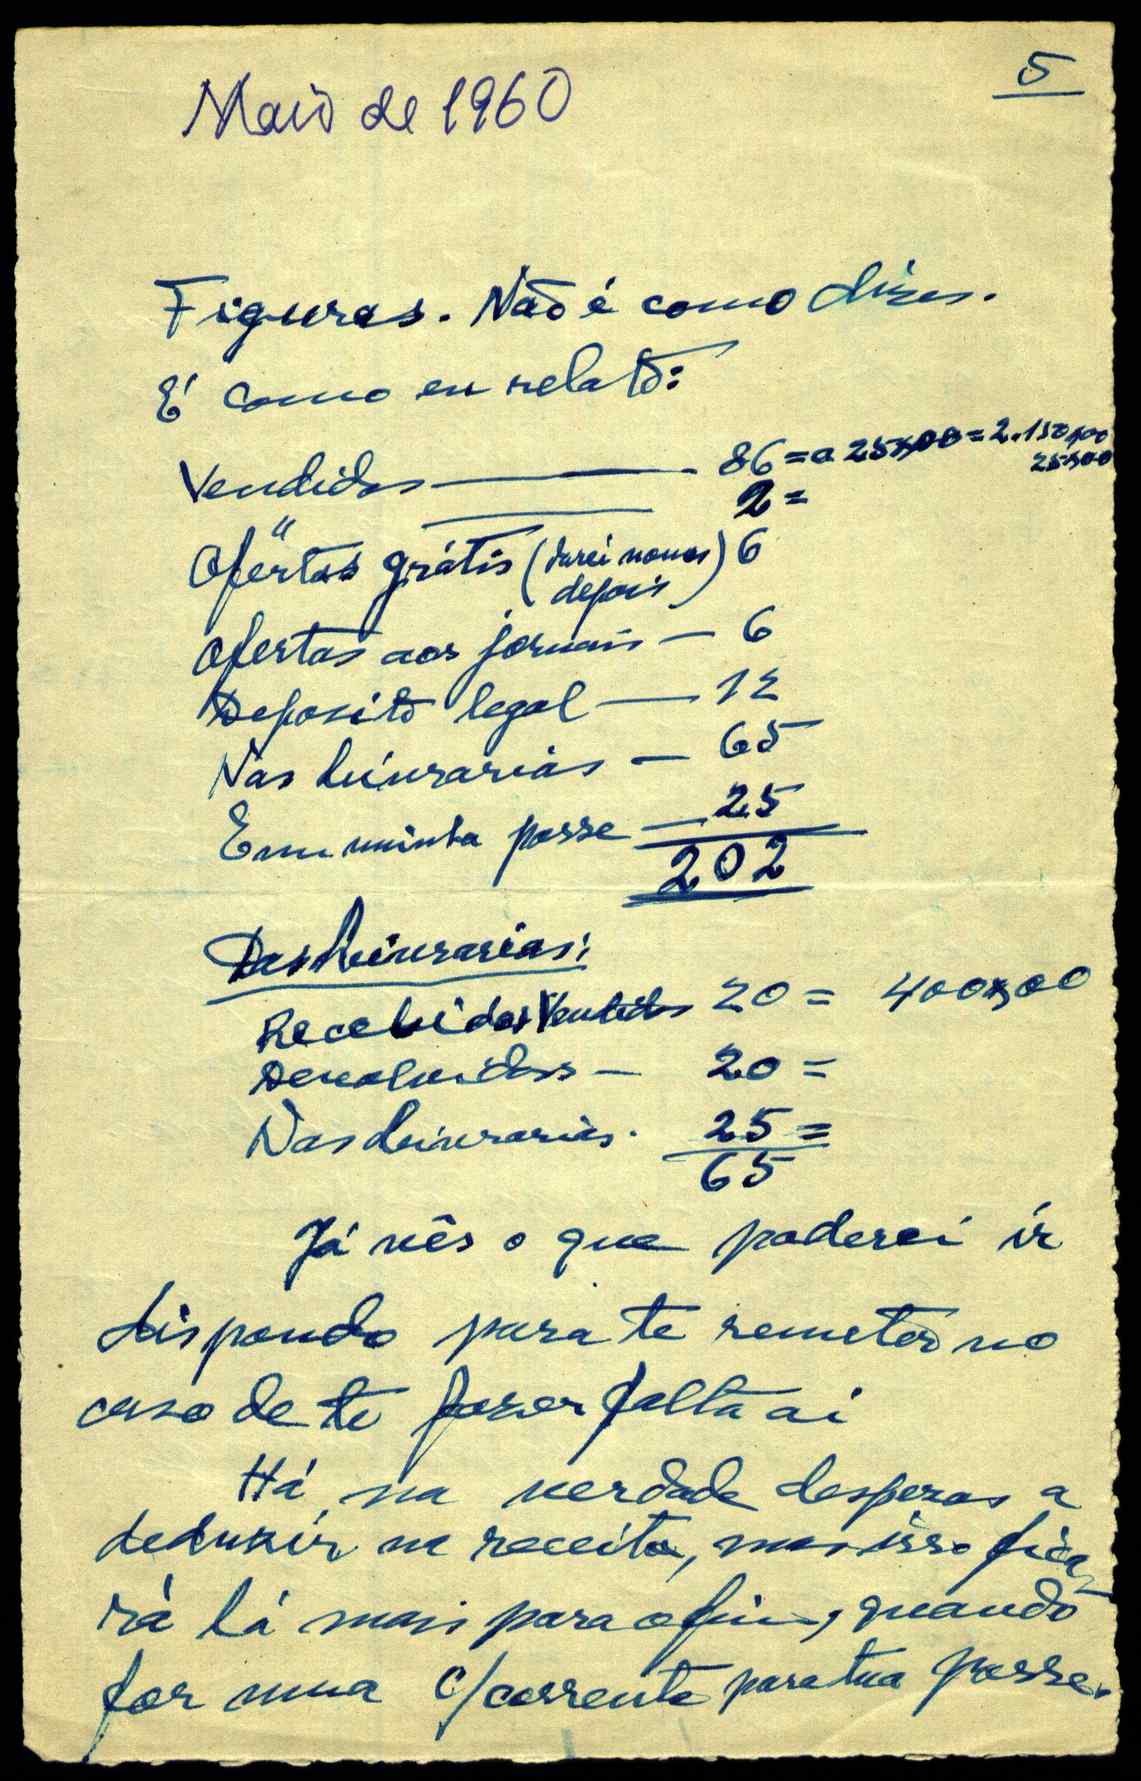 5
Maio de 1960
Figuras. Não é como dizes.
É como eu relato:
Vendidos — 86 = a 25$00 = 2.150$00
" 2 = 25$00
Ofertas grátis (darei nomes depois) 6
Ofertas aos jornais — 6
Deposito legal — 12
Nas livrarias — 65
Em minha posse — 25
202
Das livrarias:
Recebidos Vendidos 20 = 400$00
Devolvidos — 20 =
Nas livrarias. 25 =
65
Já vês o que poderei ir
dispondo para te remeter no
caso de te fazer falta aí
Há na verdade despezas a
deduzir na receita, mas isso fica-
rá lá mais para o fim, quando
for uma c/corrente para tua posse.